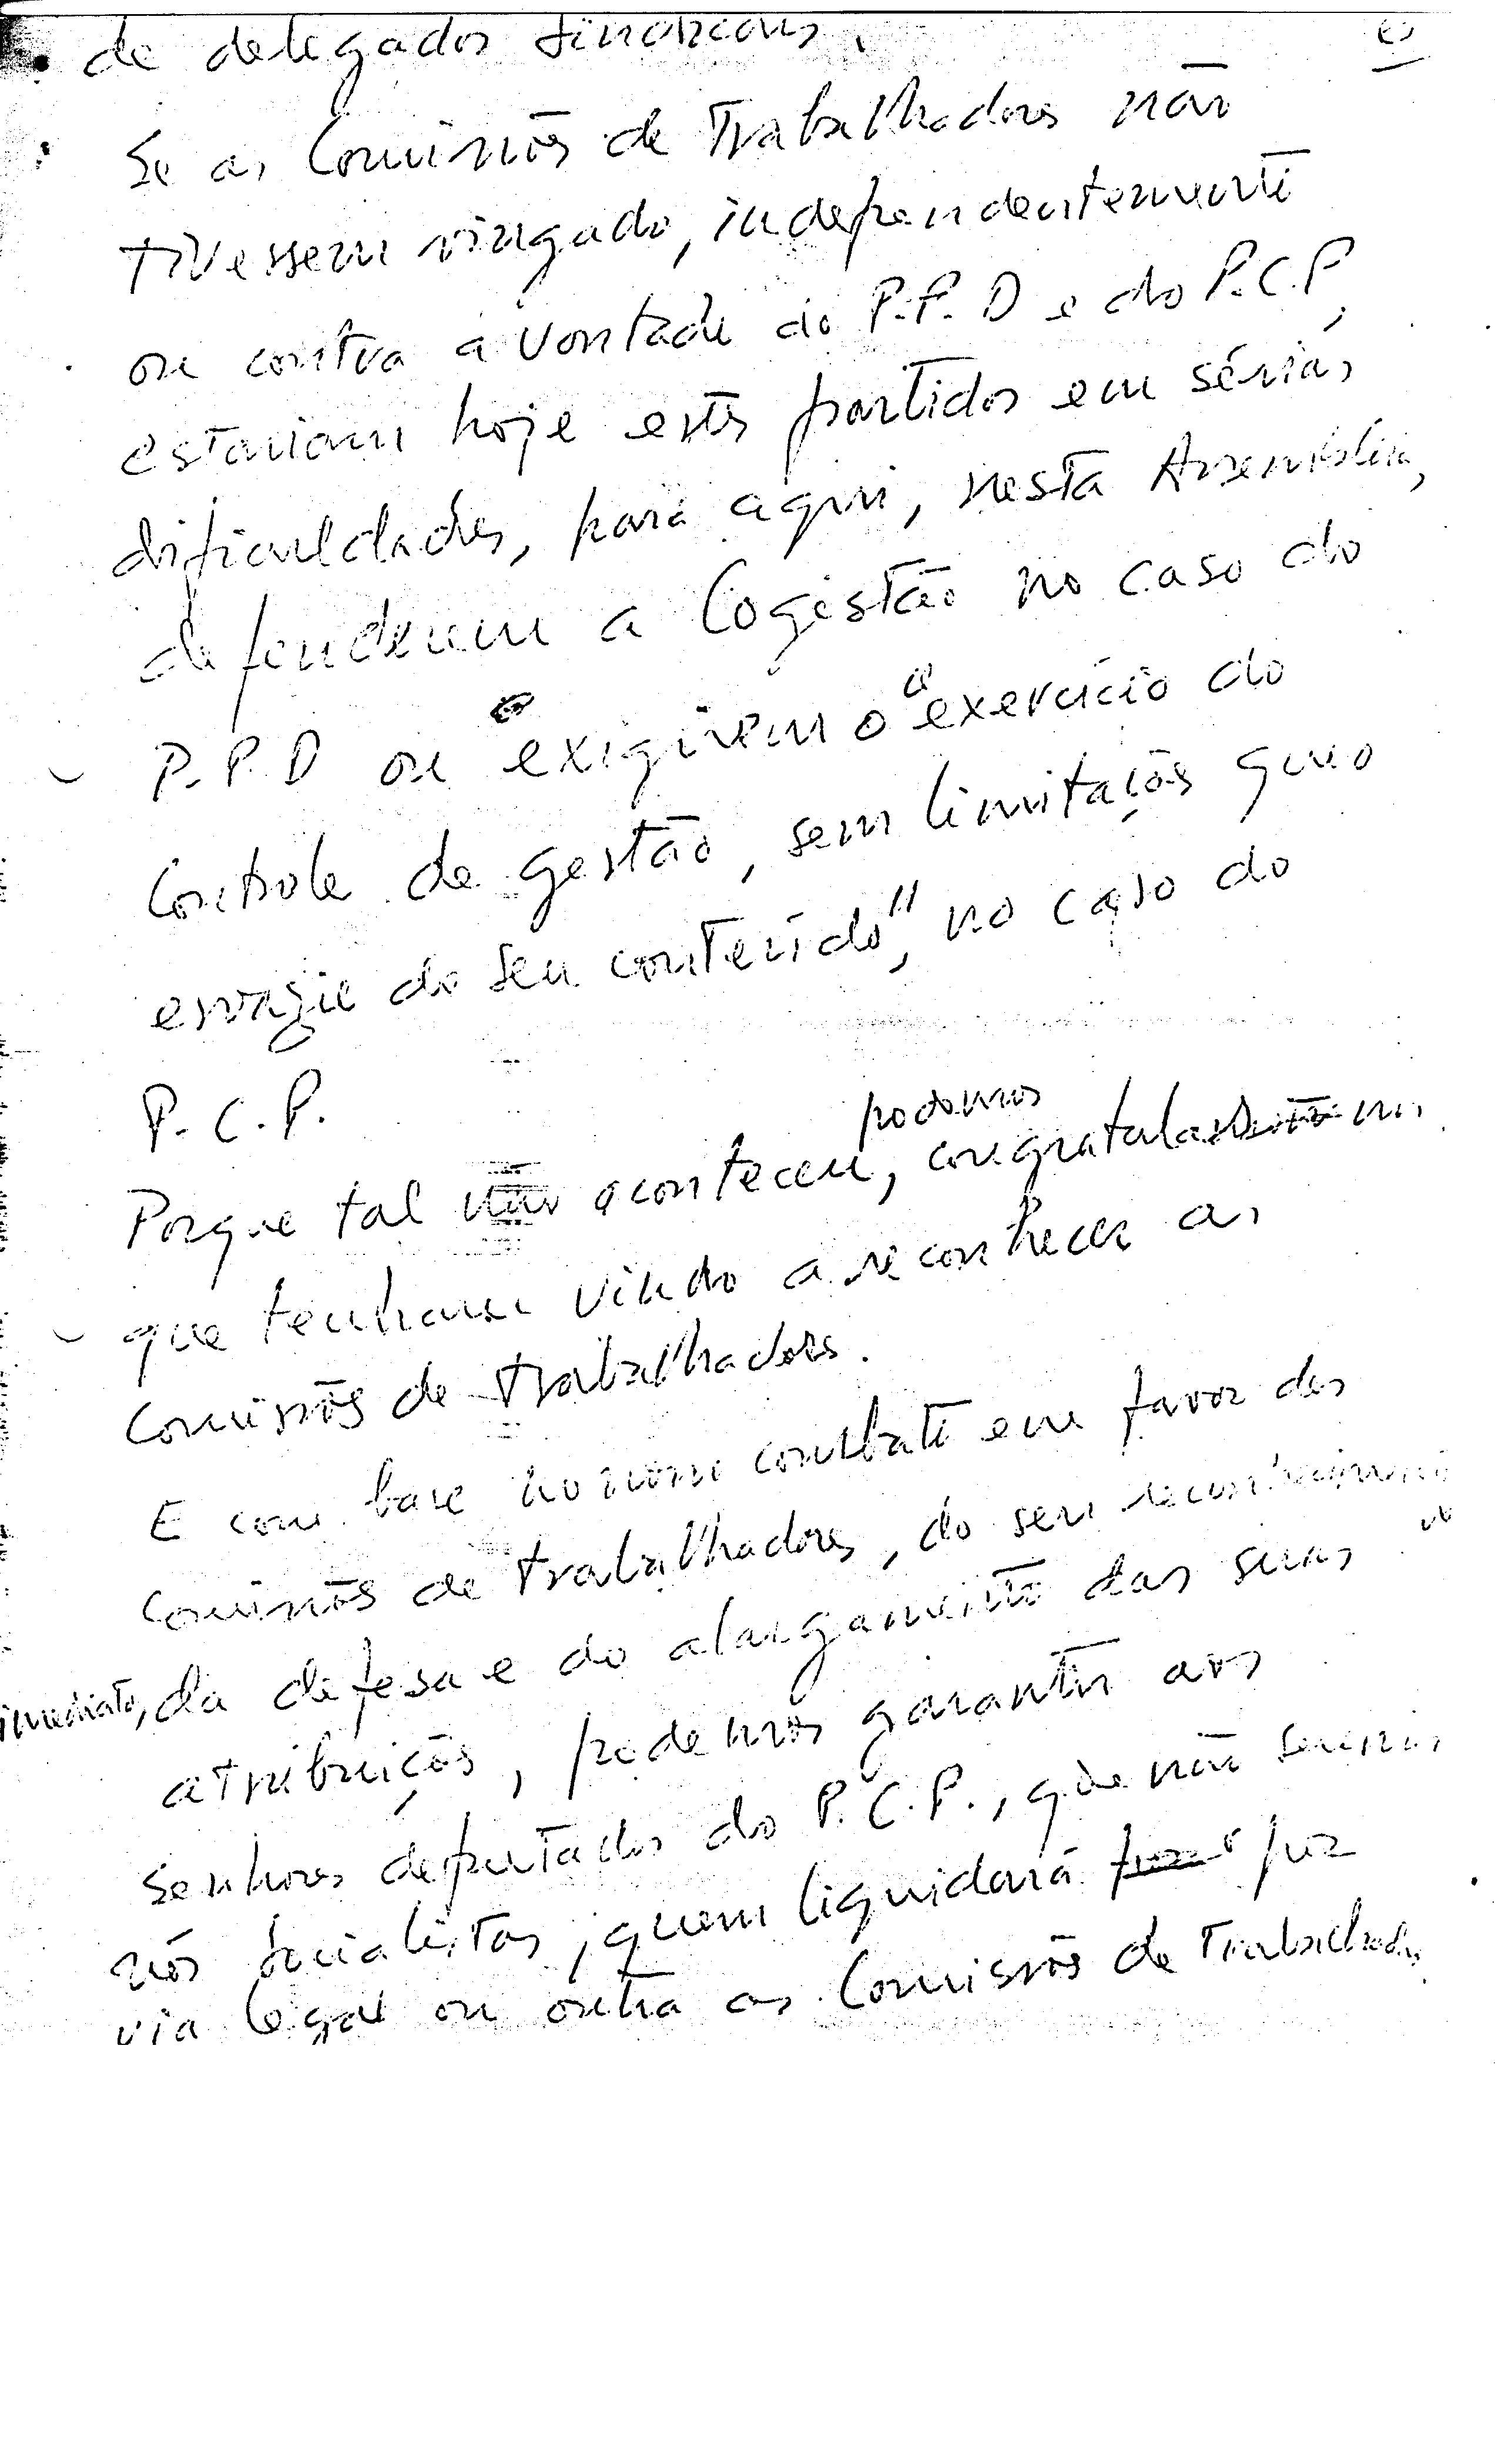 de delegados sindicais.
Se as Comissões de Trabalhadores não
tivessem vingado, independentemente
ou contra a vontade do P.P.D e do P.C.P,
estariam hoje estes partidos em sérias
dificuldades, para aqui, nesta Assembleia,
defenderem a Cogestão no caso do
P.P.D ou exigirem o "exercício do
Controle de gestão, sem limitações que o
esvazie do seu conteúdo", no caso do
P.C.P.
podemos
Porque tal não aconteceu, congratular nos
que tenham vindo a reconhecer as
Comissões de trabalhadores.
E com base no nosso combate em favor das
Comissões de trabalhadores, do seu reconhecimento
imediato, da defesa e do alargamento das suas
atribuições, podemos garantir aos
Senhores deputados do P.C.P., que não seremos
nós socialistas, quem liquidará por
via legal ou outra as Comissões de Trabalhadores.